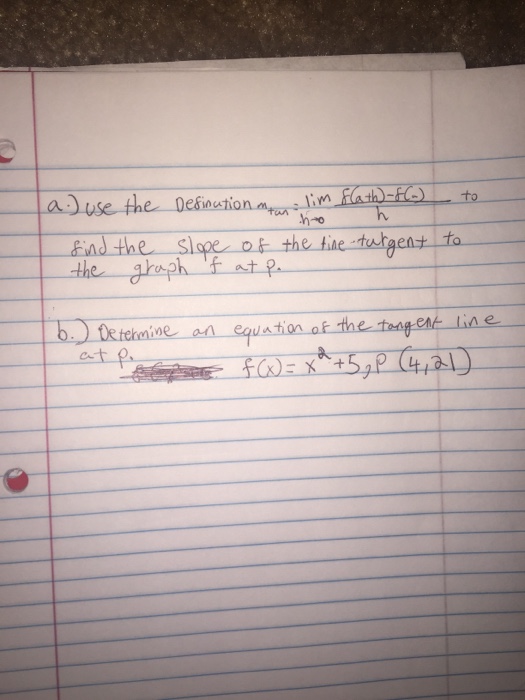 a.) use the Defination m tan = lim h→0 f(a+h)-f(-) / h to
find the slope of the tine tutgent to
the graph f at p.
b.) Determine an equation of the tangent line
at p. f(x) = x² + 5, P (4,21)